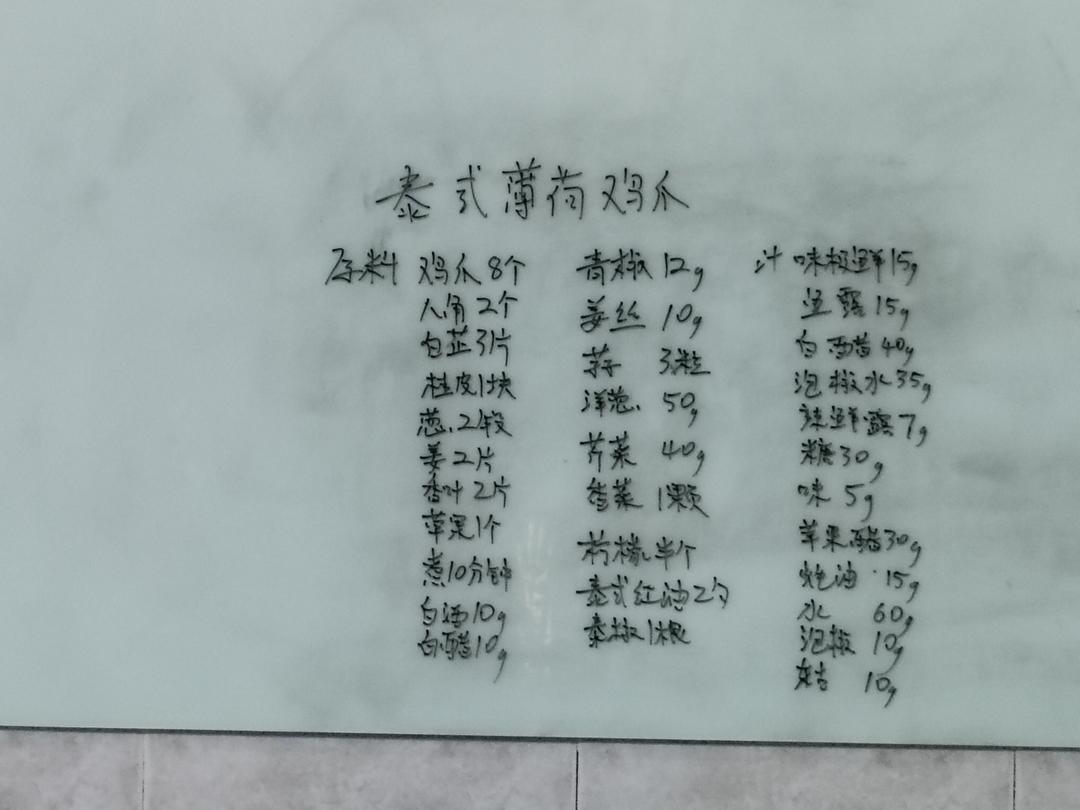 泰式薄荷鸡爪
原料 鸡爪8个
八角2个
白芷3片
桂皮1块
葱2段
姜2片
香叶2片
草果1个
煮10分钟
白酒10g
白醋10g
青椒12g
姜丝 10g
蒜 3粒
洋葱 50g
芹菜 40g
香菜 1颗
柠檬半个
泰式红油2勺
泰椒1根
汁 味极鲜15g
鱼露15g
白醋40g
泡椒水35g
辣鲜露7g
糖30g
味 5g
苹果醋30g
油 15g
水 60g
泡椒 10g
10g